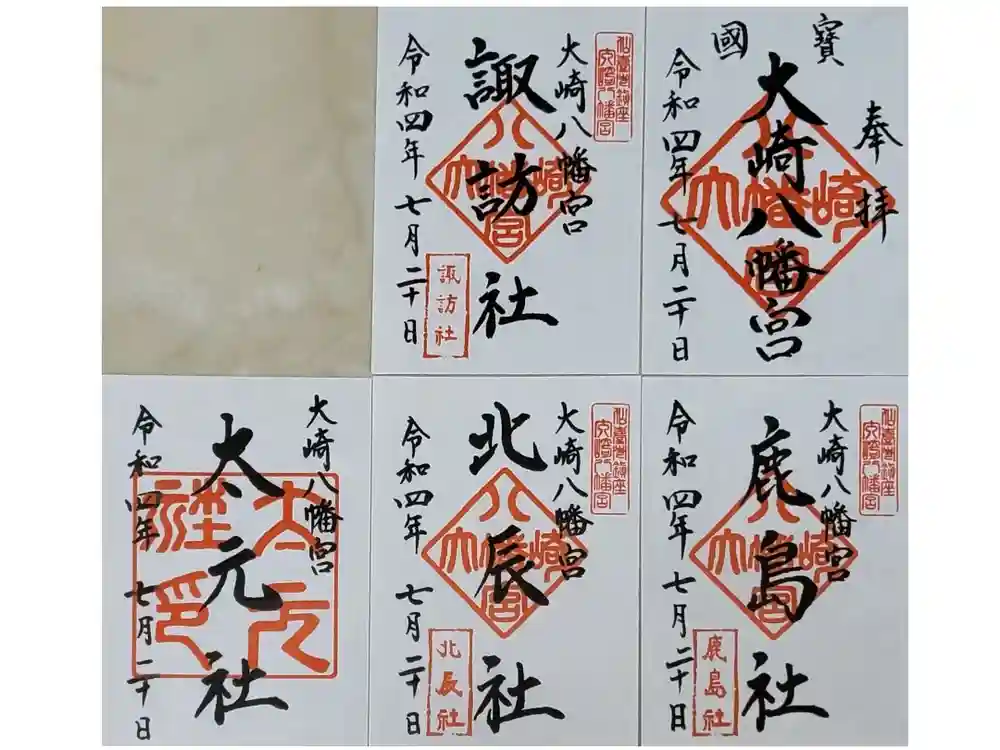 奉拝
國寶
大崎八幡宮
大崎八幡宮
令和四年七月二十日
大崎八幡宮
諏訪社
大崎八幡宮
諏訪社
令和四年七月二十日
大崎八幡宮
鹿島社
大崎八幡宮
鹿島社
令和四年七月二十日
大崎八幡宮
北辰社
大崎八幡宮
北辰社
令和四年七月二十日
大崎八幡宮
太元社
太元社印
令和四年七月二十日